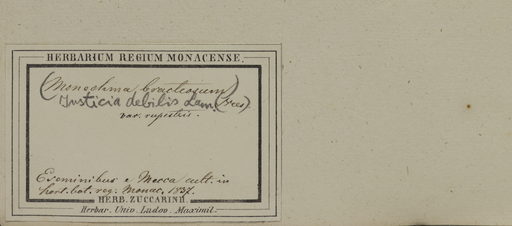 HERBARIUM REGIUM MONACENSE.
(Monechma bracteosum)
Justicia debilis Lam. (Nees)
var. rupestris.
E seminibus e Mecca cult. in
hort. bot. reg. Monac. 1837.
HERB. ZUCCARINII.
Herbar. Univ. Ludov. Maximil.